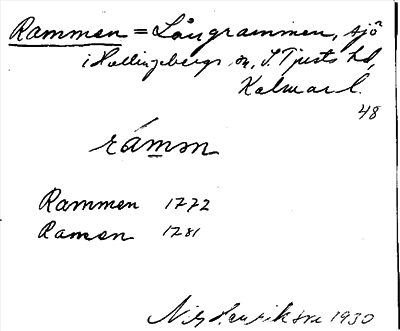 Rammen = Långrammen, sjö
i Hallingebergs sn, S. Tjusts hd,
Kalmar l.
48
rámm
Rammen 1772
Ramen 1781
Nils Henriksson 1930